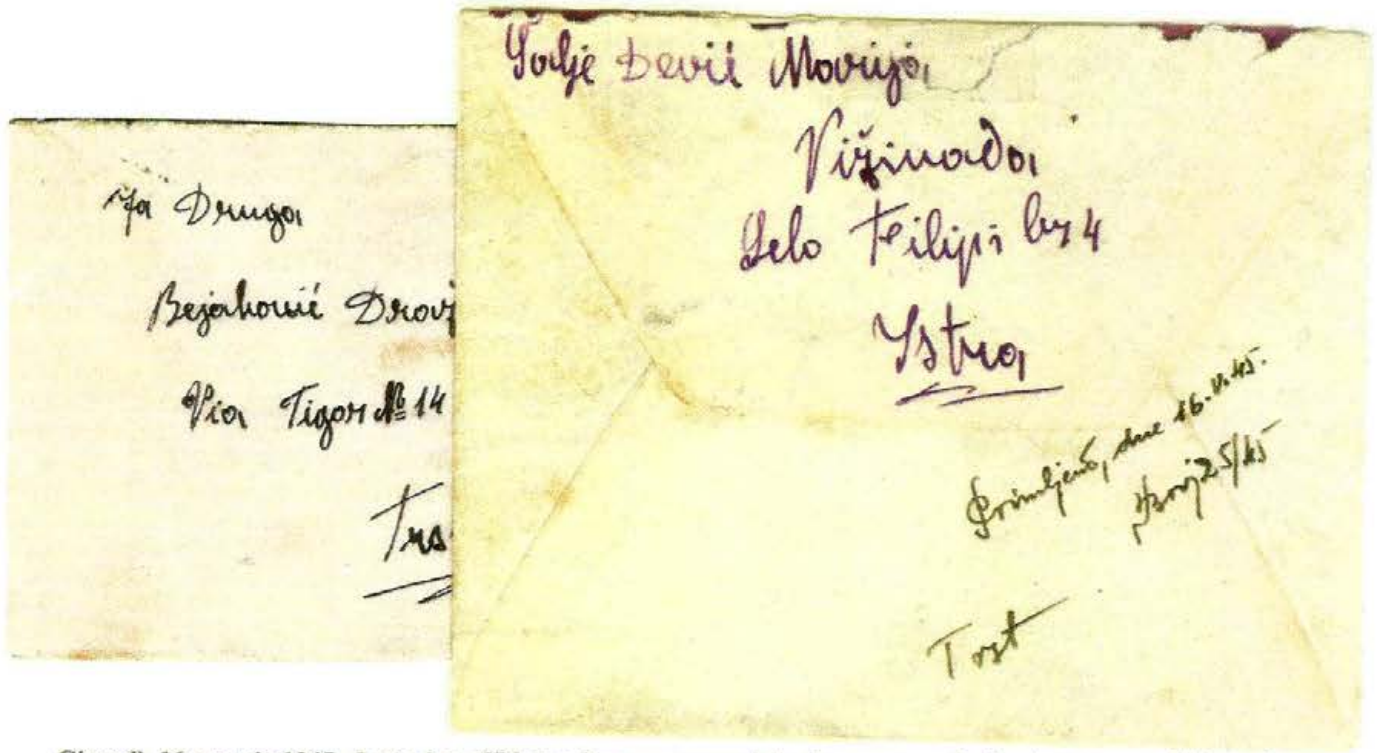 Za Druga
Bejaković Drav
Via Tigor № 14
Trs
Šalje Dević Marija
Vižinada
Selo Filipi br 4
Istra
Primljeno, dne 16.V.45.
broj 25/45
Trst